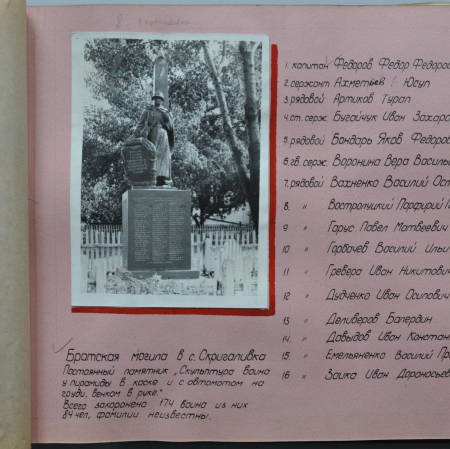 1. капитан Федоров Федор Федоров
2. сержант Ахметьев Юсуп
3. рядовой Артиков Турап
4. ст. серж. Бугайчук Иван Захаро
5. рядовой Бондарь Яков Федоров
6. гв. серж. Воронина Вера Василье
7. рядовой Вахненко Василий Ост
8 " Востролуцкий Порфирий П
9 " Гарус Павел Матвеевич
10 " Горбачев Василий Ильи
11 " Гревера Иван Никитович
12 " Дудченко Иван Осипович
13 " Деливеров Балердин
14 " Давыдов Иван Констан
15 " Емельяненко Василий Пр
16 " Заика Иван Дорофосьев
Братская могила в с. Скригаливка
Постоянный памятник „Скульптура воина
у пирамиды в каске и с автоматом на
груди, венком в руке."
Всего захоронено 174 воина из них
84 чел, фамилии неизвестны.